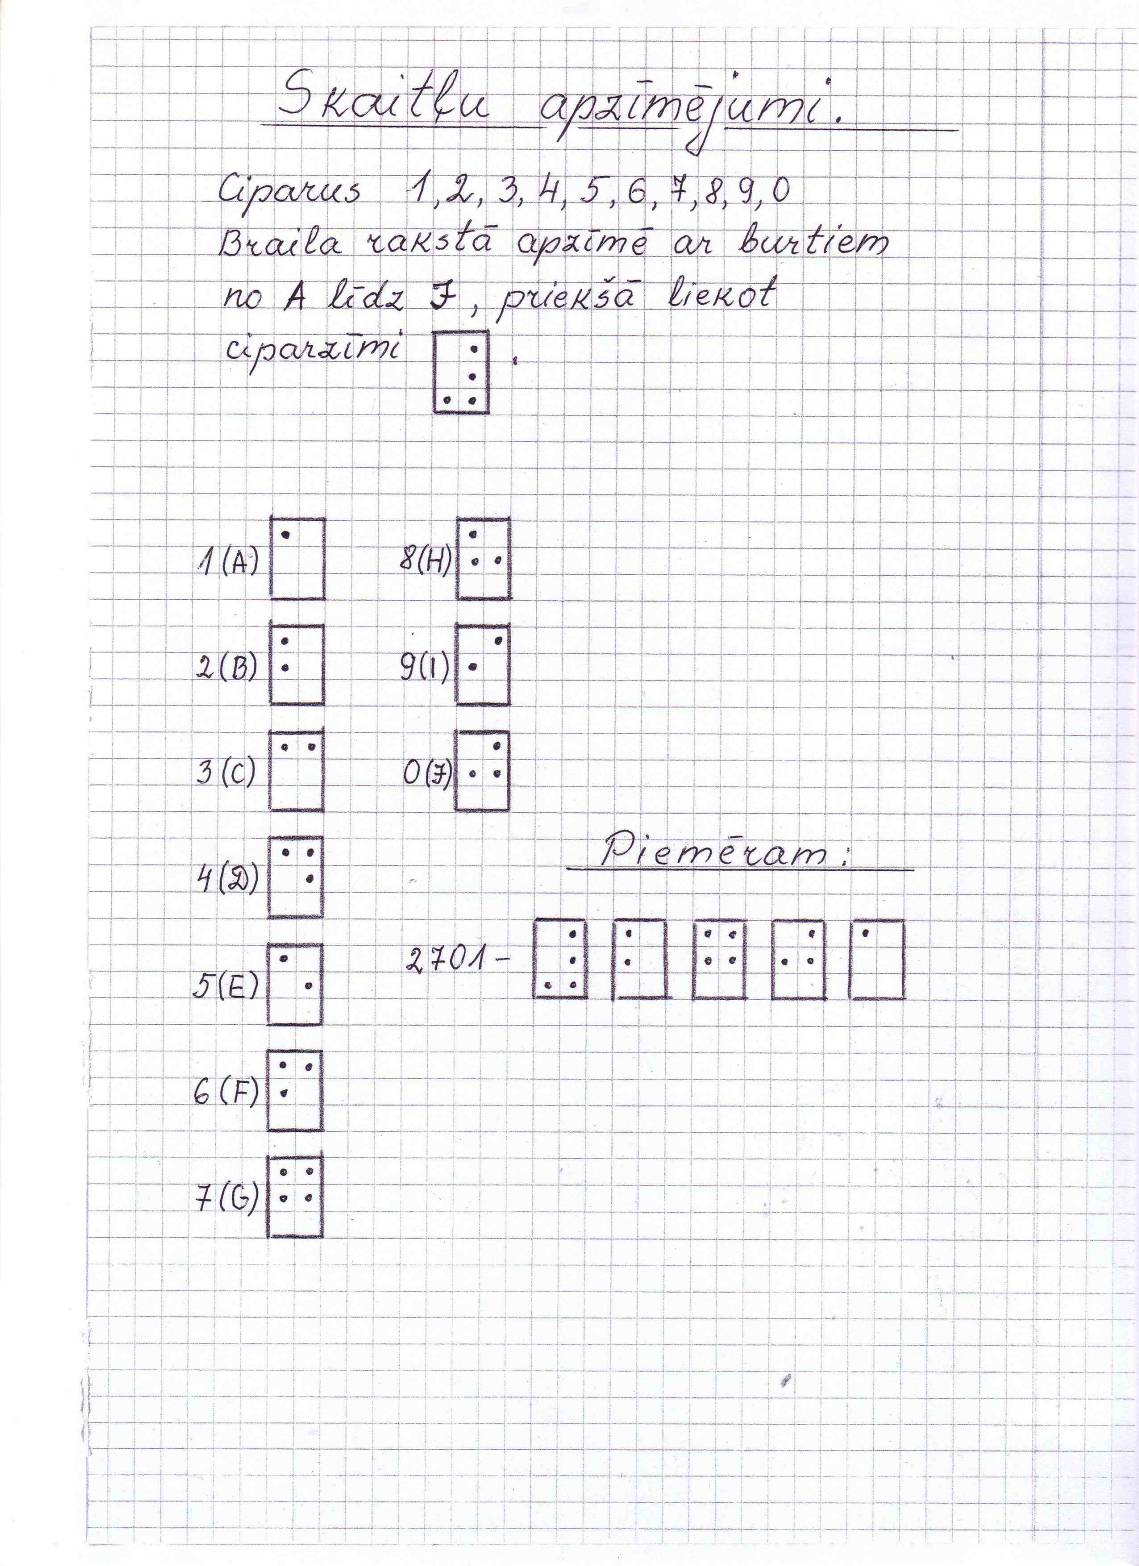 Skaitļu apzīmējumi.
Ciparus 1, 2, 3, 4, 5, 6, 7, 8, 9, 0
Braila rakstā apzīmē ar burtiem
no A līdz J, priekšā liekot
ciparzīmi ⠼.
1(A) ⠁ 8(H) ⠓
2(B) ⠃ 9(I) ⠊
3(C) ⠉ 0(J) ⠚
Piemēram:
4(D) ⠙
2701- ⠼ ⠃ ⠛ ⠚ ⠁
5(E) ⠑
6(F) ⠋
7(G) ⠛